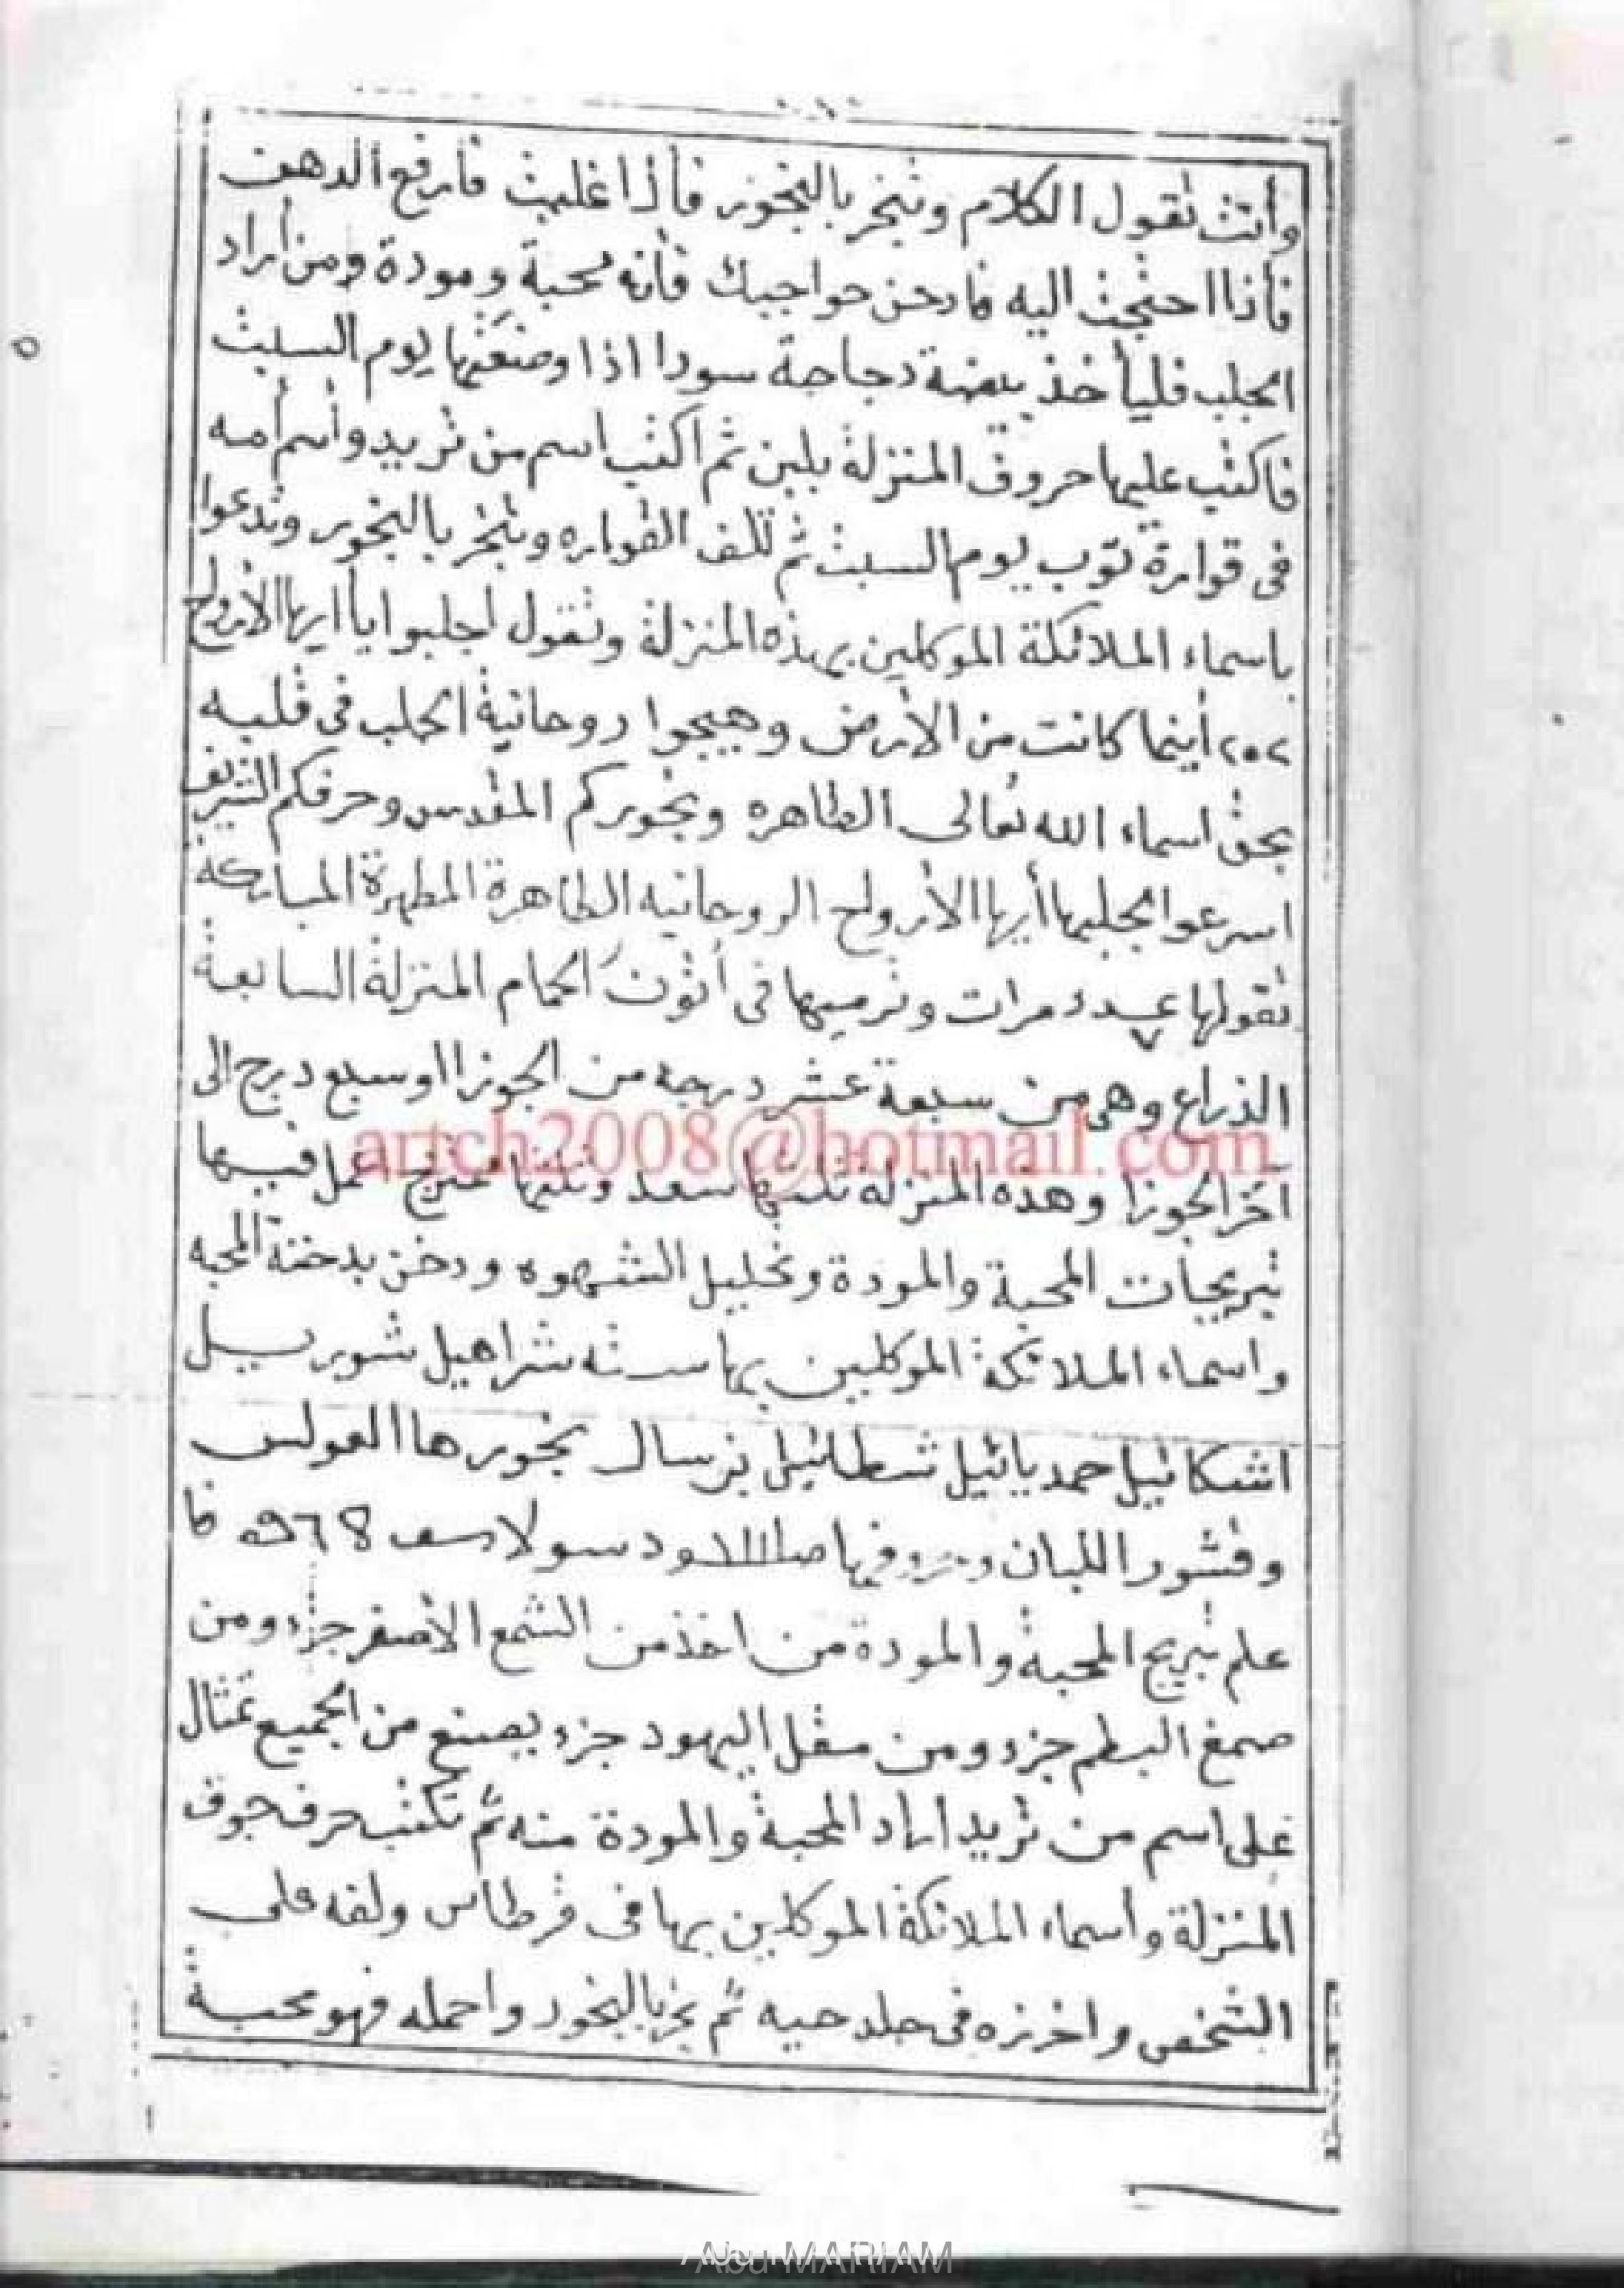 وأنت تقول الكلام وتبخر بالبخور فأذا غليت فأرفع الدهن
فأذا احتجت اليه فادهن حواجبك فأنه محبة ومودة ومن أراد
الجلب فليأخذ بيضة دجاجة سودا اذا وضعتها يوم السبت
فاكتب عليها حروف المنزلة بلبن ثم اكتب اسم من تريد وأسم أمه
فى قوارة توب يوم السبت ثم تلف القواره وتبخر بالبخور وتدعوا
باسماء الملائكة الموكلين بهذه المنزلة وتقول اجلبوا ياأيها الأرواح
أينما كانت من الأرض وهيجوا روحانية الجلب فى قلبه
بحق اسماء الله تعالى الطاهره وبخوركم المقدس وحرفكم الشريف
اسرعوا بجلبها أيها الأرواح الروحانيه الطاهرة المطهرة المباركة
تقولها عدد ٧ مرات وترميها فى أتون الحمام المنزلة السابعة
الذراع وهى من سبعة عشر درجة من الجوزا اوسبع درج الى
artch2008@hotmail.com
آخر الجوزا وهذه المنزلة ثلثها سعد وثلثها ممتزج عمل فيها
تبريجات المحبة والمودة وتحليل الشهوه ودخن بدخنة المحبه
واسماء الملائكة الموكلين بها سته شراهيل شوربيل
اشكائيل حمديائيل شطائيل بزسال بخورها
وقشور اللبان وحروفها
علم تبريج المحبة والمودة من اخذ من الشمع الأصفر جزء ومن
صمغ البطم جزء ومن مقل اليهود جزء يصنع من الجميع تمثال
على اسم من تريد اراد المحبة والمودة منه ثم تكتب حرف جوف
المنزلة وأسماء الملائكة الموكلين بها فى قرطاس ولفه على
الشخص واخرزه فى جلد حيه ثم بخر بالبخور واحمله فهو محبة
Abu MARIAM